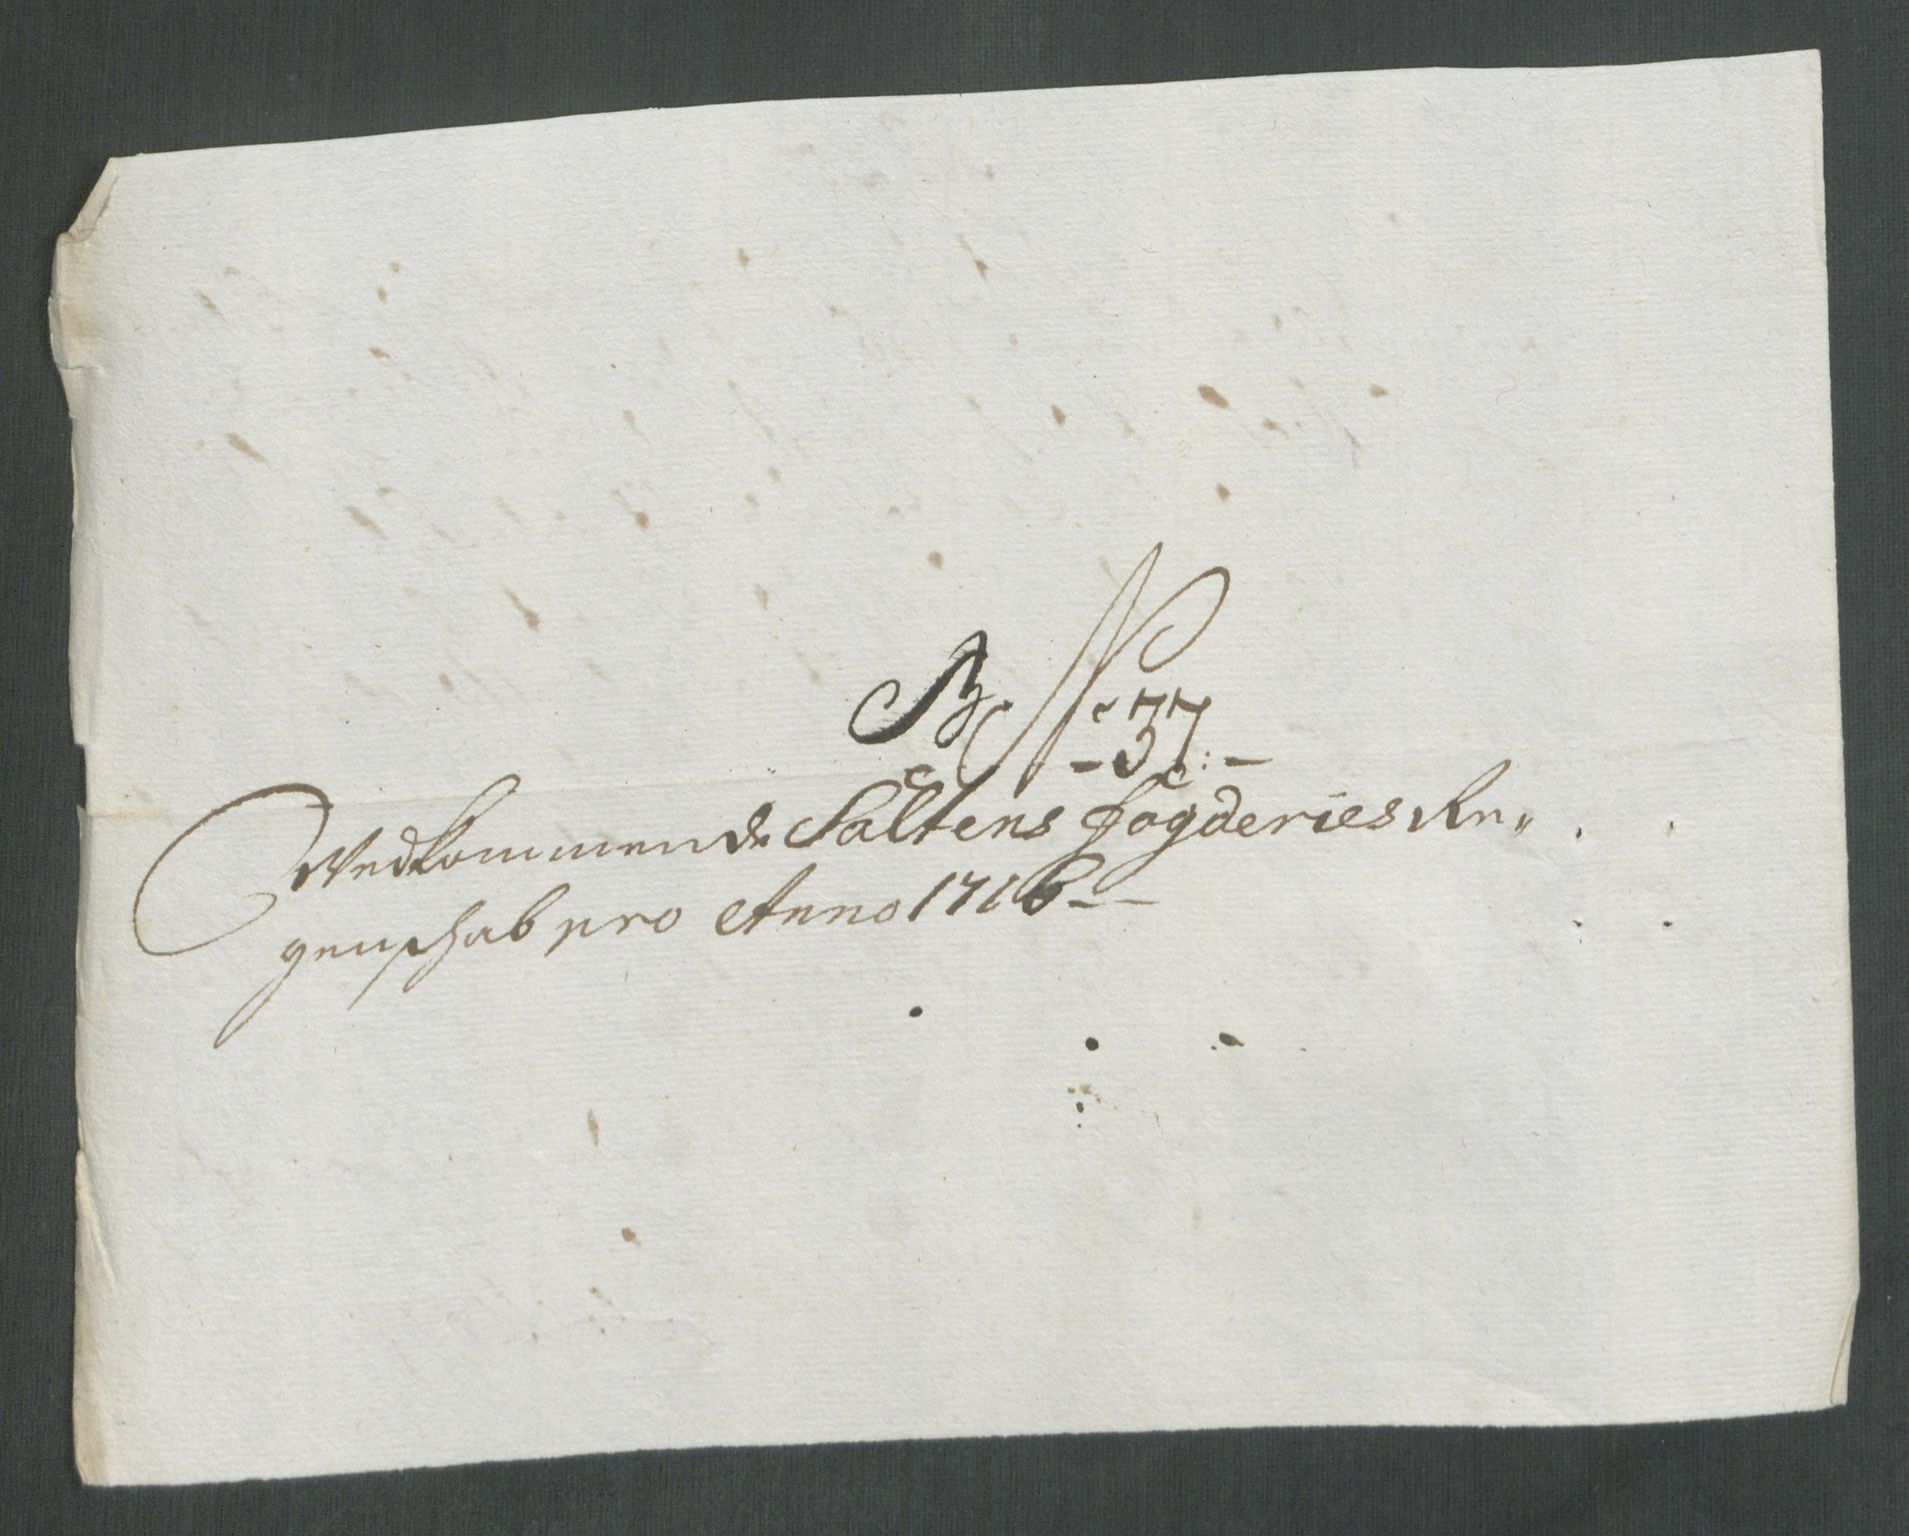 No 37.
Vedkommende Saltens fogderies Re„
genschab pro Anno 1716